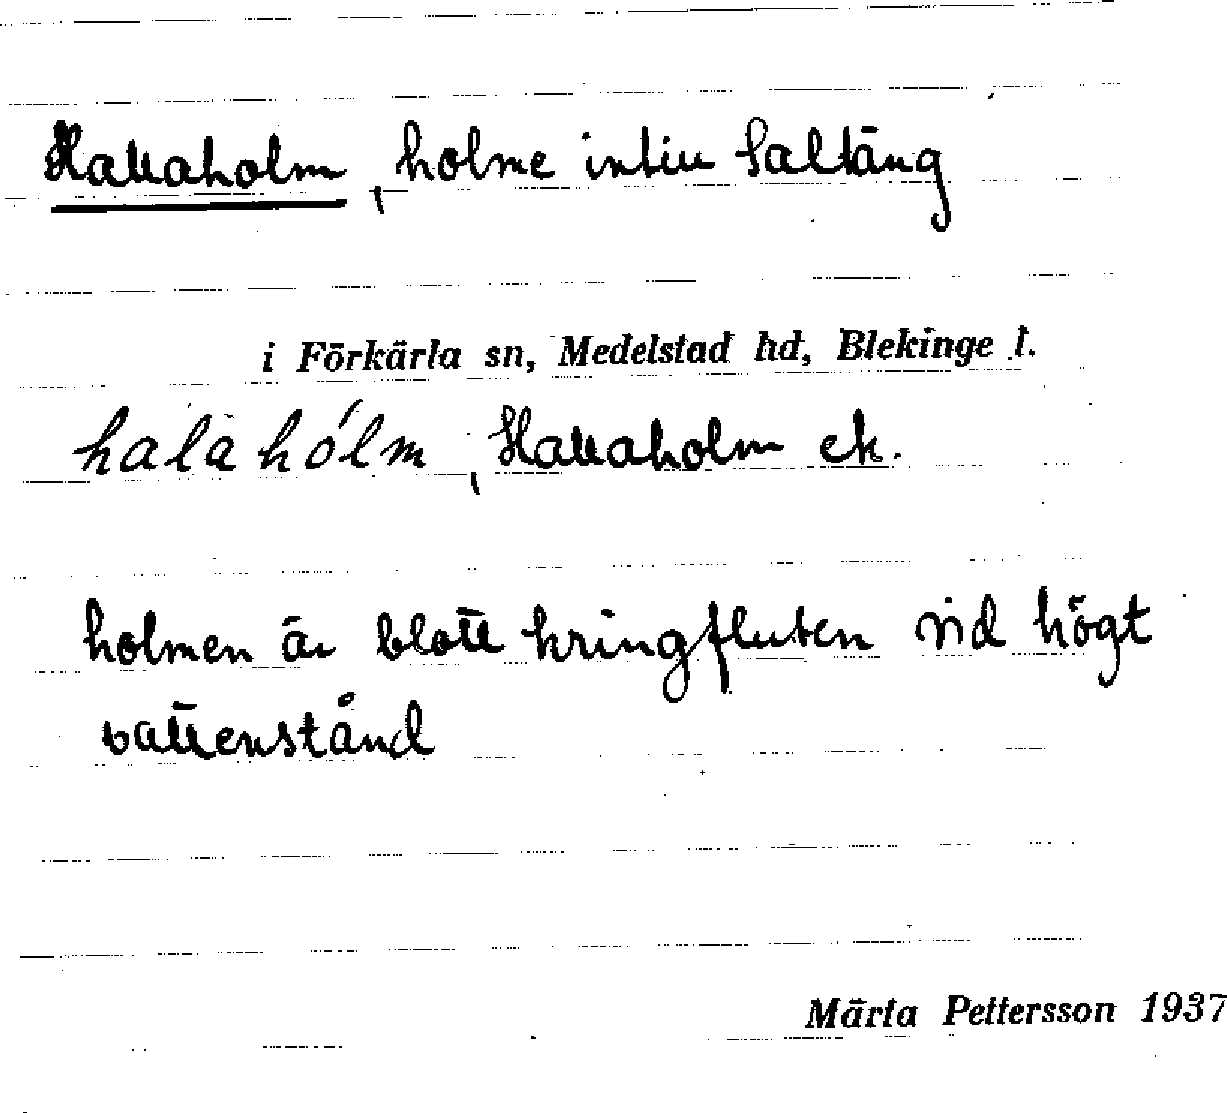 Hallaholm, holme intill Saltäng
i Förkärla sn, Medelstad hd, Blekinge l.
hala hólm, Hallaholm ek.
holmen är blott kringfluten vid högt
vattenstånd
Märta Pettersson 1937